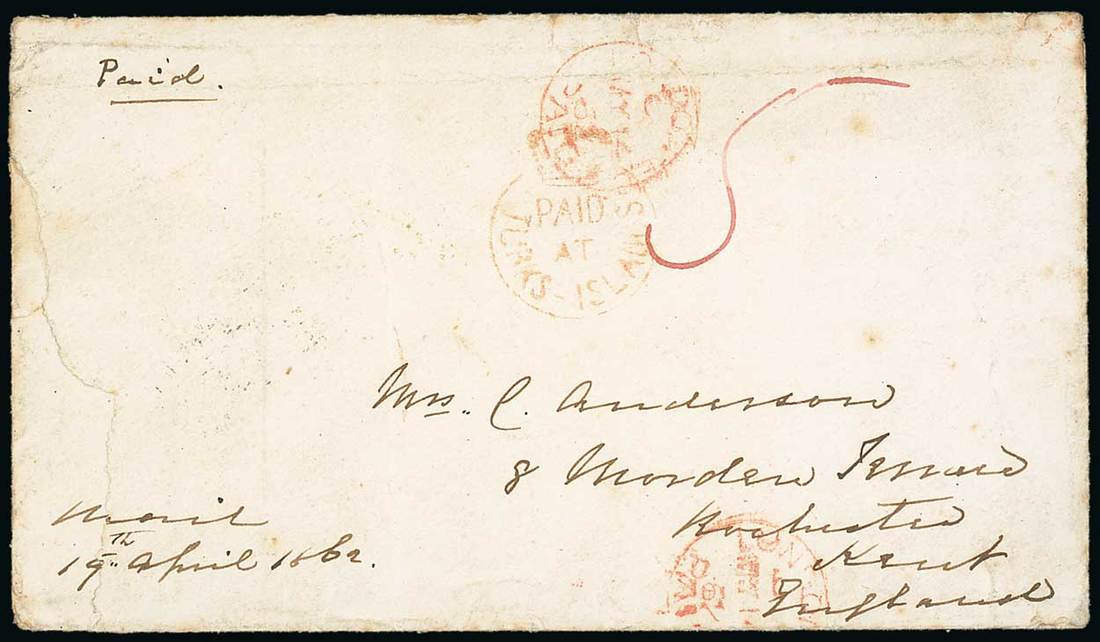 Paid.
PAID
AT
TURKS-ISLANDS
Mrs. C. Anderson
8 Morden Terrace
Rochester
Kent
England
Mail
19th April 1862.